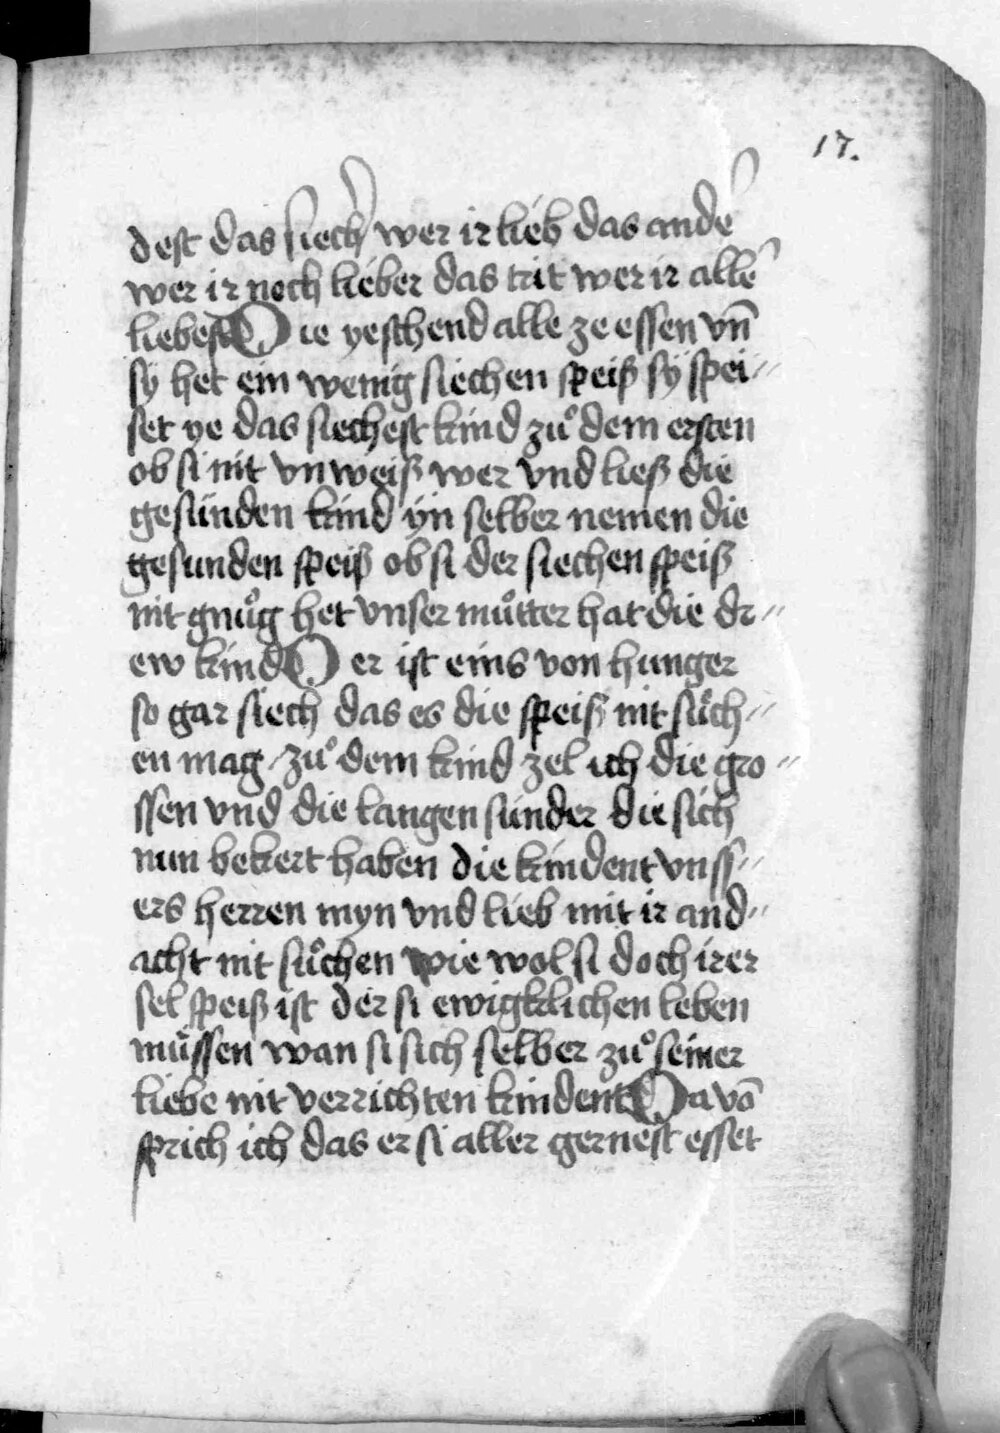 17.
dest das siech wer ir lieb das ande
wer ir noch lieber das trit wer ir alle
liebest Die yeschend alle ze essen vn̄
sÿ het ein wenig siechen speiß sÿ spei〃
set ye das siechest kind zuͦ dem ersten
ob si nit vnweiß wer vnd ließ die
gesunden kind ÿn selber nemen die
gesunden speiß ob si der siechen speiß
nit gnuͦg het vnser muͦtter hat die dr〃
ew kind Der ist eins von hunger
so gar siech das es die speiß nit suͦch〃
en mag zuͦ dem kind zel ich die gro〃
ssen vnd die langen sunder die sich
nun bekert haben die kindent vnss〃
ers herren myn vnd lieb mit ir and〃
acht nit suͦchen wie wol si doch irer
sel speiß ist der si ewigklichen leben
muͤssen wan si sich selber zuͦ seiner
liebe nit verrichten kindent Da vō
sprich ich das er si aller gernest esset